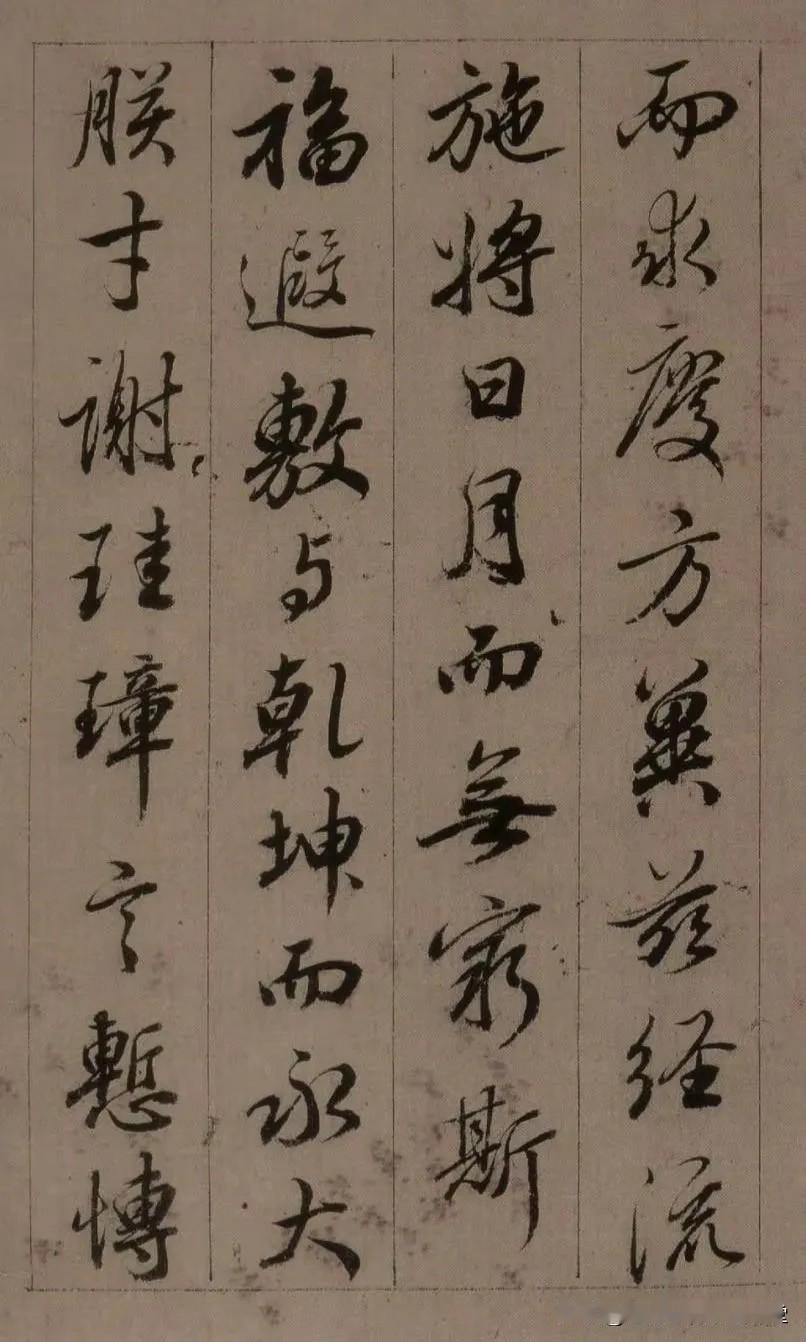 而求慶方冀兹经流
施將日月而無窮斯
福遐敷与乾坤而永大
朕才謝珪璋言慙博